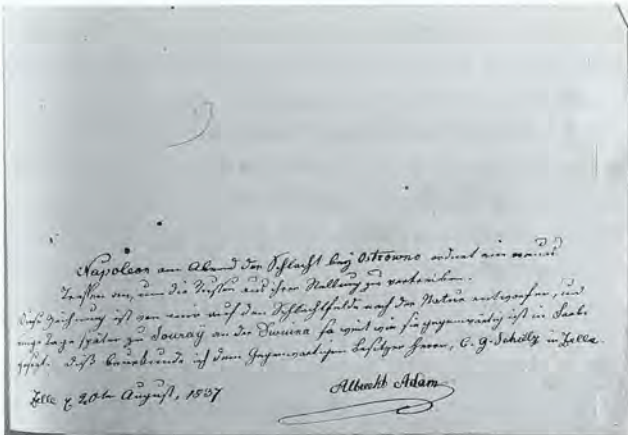 Napoleon am Abend der Schlacht bey Ostrowno ordnet ein neues
Treffen an, um die Russen aus ihrer Stellung zu vertreiben.
Diese Zeichnung ist von mir auf dem Schlachtfelde nach der Natur entworfen, und
einige Tage später zu Souraÿ an der Dwina so weit wie sie gegenwärtig ist in Farbe
gesetzt. Dieß beurkunde ich dem gegenwärtigen Besitzer Herrn, C. G. Schulz in Zelle.
Zelle d 20ten August, 1837
Albrecht Adam